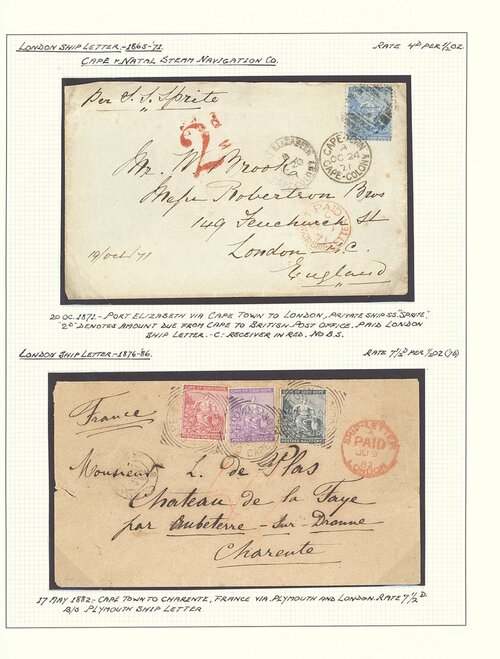 LONDON SHIP LETTER.-1865-71.
RATE 4D PER 1/2 OZ.
CAPE & NATAL STEAM NAVIGATION CO.
Per S. S. Sprite
2D
CAPE-TOWN
A
OC 24
71
CAPE-COLONY
Mr. W. Brook
Messrs Robertson Bros
149 Fenchurch St
PAID
71
London E.C.
19/Oct/71
England
20 OC. 1871.- PORT ELIZABETH VIA CAPE TOWN TO LONDON, PRIVATE SHIP SS "SPRITE".
"2D" DENOTES AMOUNT DUE FROM CAPE TO BRITISH POST OFFICE. PAID LONDON
SHIP LETTER.-C- RECEIVER IN RED. NO B.S.
LONDON SHIP LETTER-1876-86.
RATE 7 1/2D PER 1/2 OZ (76)
CAPE OF GOOD HOPE
CAPE OF GOOD HOPE
CAPE OF GOOD HOPE
POSTAGE HALFPENNY
France
SHIP-LETTER
A
PAID
JU 9
82
LONDON
Monsieur L. de Plas
Chateau de la Faye
par Aubeterre-sur-Dronne
Charente
17 MAY 1882.- CAPE TOWN TO CHARENTE, FRANCE VIA PLYMOUTH AND LONDON. RATE 7 1/2 D.
B/S PLYMOUTH SHIP LETTER